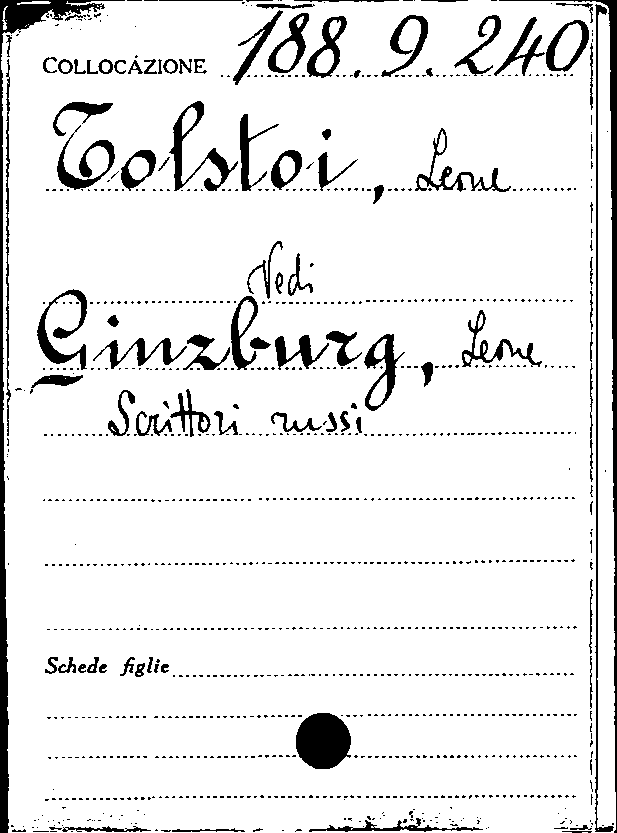 COLLOCAZIONE 188.9.240
Tolstoi, Leone
Vedi
Ginzburg, Leone
Scrittori russi
Schede figlie